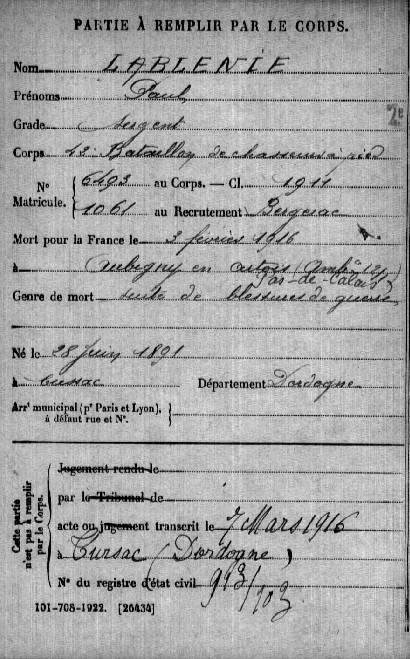 PARTIE À REMPLIR PAR LE CORPS.
Nom LABLENIE
Prénoms Paul
Grade Sergent
2e
Corps 42e Bataillon de chasseurs à pied
N° Matricule. 6493 au Corps. — Cl. 1911
1061 au Recrutement Bergerac
Mort pour la France le 3 février 1916
à Aubigny en artois (Ambce 12/1)
Pas-de-Calais
Genre de mort suite de blessures de guerre
Né le 28 Juin 1891
à Cussac Département Dordogne
Arrt municipal (pr Paris et Lyon),
à défaut rue et N°.
Cette partie n'est pas à remplir par le Corps.
Jugement rendu le
par le Tribunal de
acte ou jugement transcrit le 7 Mars 1916
à Cursac (Dordogne)
N° du registre d'état civil 913/103
101-708-1922. [26434]